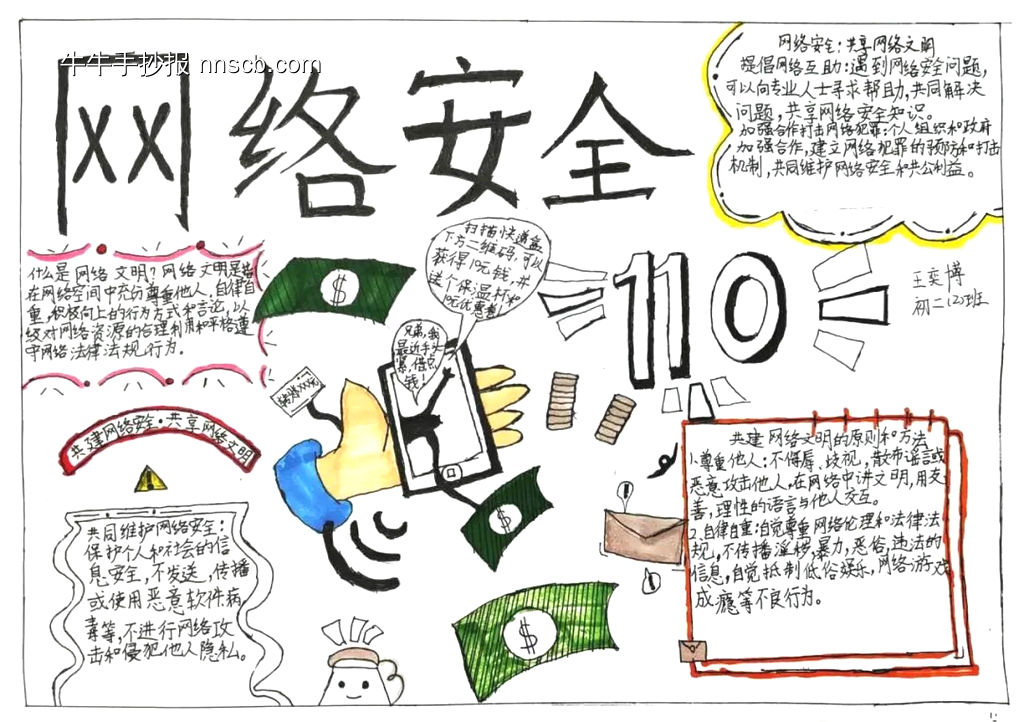 牛牛手抄报 nnscb.com
网络安全
网络安全:共享网络文明
提倡网络互助:遇到网络安全问题,
可以向专业人士寻求帮助,共同解决
问题,共享网络安全知识。
加强合作打击网络犯罪:个人组织和政府
加强合作,建立网络犯罪的预防和打击
机制,共同维护网络安全和共公利益。
什么是网络文明?网络文明是指
在网络空间中充分尊重他人,自律自
重,积极向上的行为方式和言论,以
级对网络资源的合理利用和平格遵
守网络法律法规行为。
扫描快递盒
下方二维码,可以
获得10元钱,并
送个保温杯和
10元优惠劵!
兄弟,我
最近手头
紧,借点
钱!
转账XX元
110
王奕博
初二(2)班
共建网络安全·共享网络文明
共同维护网络安全:
保护个人和社会的信
息安全,不发送,传播
或使用恶意软件病
毒等,不进行网络攻
击和侵犯他人隐私。
共建网络文明的原则和方法
1.尊重他人:不侮辱、歧视,散布谣言或
恶意攻击他人,在网络中讲文明,用友
善,理性的语言与他人交互。
2.自律自重:自觉尊重网络伦理和法律法
规,不传播淫秽,暴力,恶俗,违法的
信息,自觉抵制低俗娱乐,网络游戏
成瘾等不良行为。
$
$
$